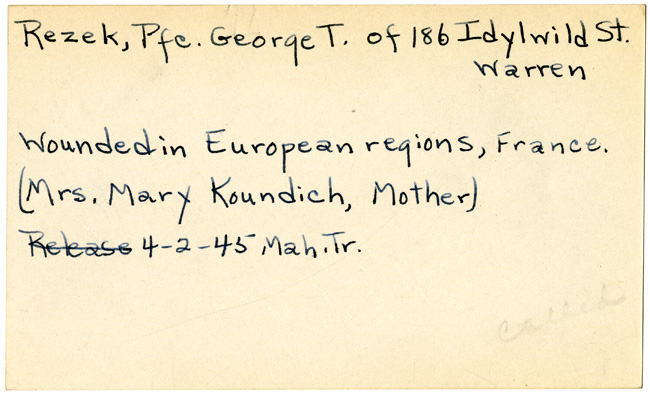 Rezek, Pfc. George T. of 186 Idylwild St.
Warren
Wounded in European regions, France.
(Mrs. Mary Koundich, Mother)
Release 4-2-45 Mah. Tr.
called